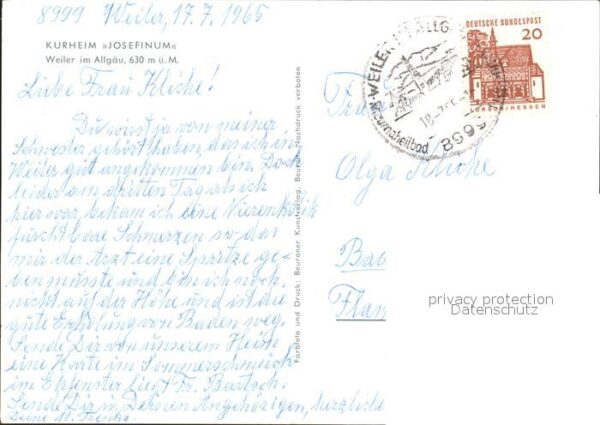 8999 Weiler, 17.7.1965
KURHEIM »JOSEFINUM«
Weiler im Allgäu, 630 m ü. M.
Liebe Frau Kliche!
Du wirst ja von meiner
Schwester gehört haben, das ich in
Weiler gut angekommen bin. Doch
leider am dritten Tag als ich
hier war bekam ich eine Nierenkolik
furchtbare Schmerzen so das
mir der Arzt eine Spritze ge-
ben musste und bin ich noch
nicht auf der Höhe und ist die
gute Erholung von Baden weg.
Sende Dir von unserem Heim
eine Karte im Sommerschmuck
im Eckfenster liegt Fr. Bartsch.
Sende Dir u. Deinen Angehörigen, herzliche
Deine M.
Farbfoto und Druck: Beuroner Kunstverlag, Beuron Nachdruck verboten
WEILER IM ALLG
18.-7.65
8999
DEUTSCHE BUNDESPOST
20
LORSCH/HESSEN
Frau
Olga Kliche
Ba
Flan
privacy protection
Datenschutz